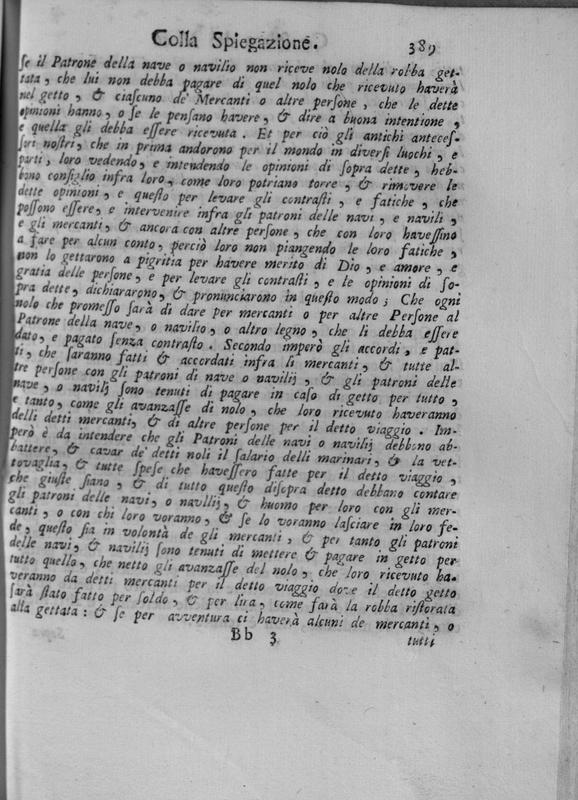 Colla Spiegazione. 389
ſe il Patrone della nave o navilio non riceve nolo della robba get-
tata, che lui non debba pagare di quel nolo che ricevuto haverà
nel getto, & ciaſcuno de' Mercanti o altre perſone, che le dette
opinioni hanno, o ſe le penſano havere, & dire a buona intentione,
e quella gli debba eſſere ricevuta. Et per ciò gli antichi anteceſ-
ſori noſtri, che in prima andorono per il mondo in diverſi luochi, e
parti, loro vedendo, e intendendo le opinioni di ſopra dette, heb-
bono conſiglio infra loro, come loro potriano torre, & rimovere le
dette opinioni, e queſto per levare gli contraſti, e fatiche, che
poſſono eſſere, e intervenire infra gli patroni delle navi, e navili,
e gli mercanti, & ancora con altre perſone, che con loro haveſſino
a fare per alcun conto, perciò loro non piangendo le loro fatiche,
non lo gettarono a pigritia per havere merito di Dio, e amore, e
gratia delle perſone, e per levare gli contraſti, e le opinioni di ſo-
pra dette, dichiararono, & pronunciarono in queſto modo; Che ogni
nolo che promeſſo ſarà di dare per mercanti o per altre Perſone al
Patrone della nave, o navilio, o altro legno, che li debba eſſere
dato, e pagato ſenza contraſto. Secondo imperò gli accordi, e pat-
ti, che ſaranno fatti & accordati infra li mercanti, & tutte al-
tre perſone con gli patroni di nave o navilij, & gli patroni delle
nave, o navilij ſono tenuti di pagare in caſo di getto per tutto,
e tanto, come gli avanzaſſe di nolo, che loro ricevuto haveranno
delli detti mercanti, & di altre perſone per il detto viaggio. Im-
però è da intendere che gli Patroni delle navi o navilij debbono ab-
battere, & cavar de' detti noli il ſalario delli marinari, & la vet-
tovaglia, & tutte ſpeſe che haveſſero fatte per il detto viaggio,
che giuſte ſiano, & di tutto queſto diſopra detto debbano contare
gli patroni delle navi, o navllij, & huomo per loro con gli mer-
canti, o con chi loro voranno, & ſe lo voranno laſciare in loro fe-
de, queſto ſia in volontà de gli mercanti, & per tanto gli patroni
delle navi, & navilij ſono tenuti di mettere & pagare in getto per
tutto quello, che netto gli avanzaſſe del nolo, che loro ricevuto ha-
veranno da detti mercanti per il detto viaggio dove il detto getto
ſarà ſtato fatto per ſoldo, & per lira, come ſarà la robba riſtorata
alla gettata: & ſe per avventura ci haverà alcuni de mercanti, o
Bb 3 tutti